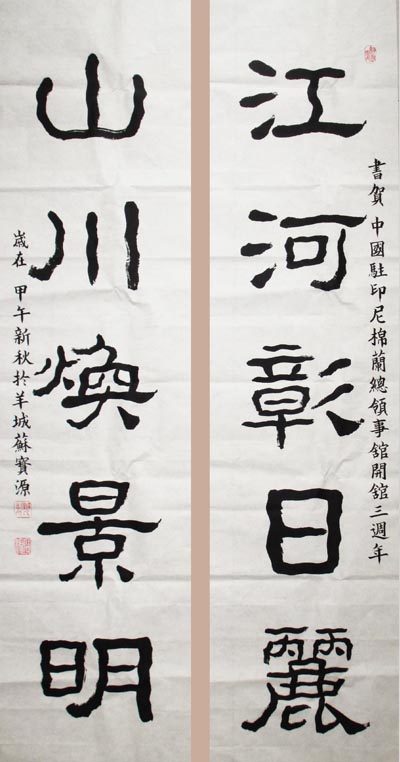 書賀中國駐印尼棉蘭總領事舘開舘三週年
江河彰日麗
山川煥景明
歲在甲午新秋於羊城蘇寶源